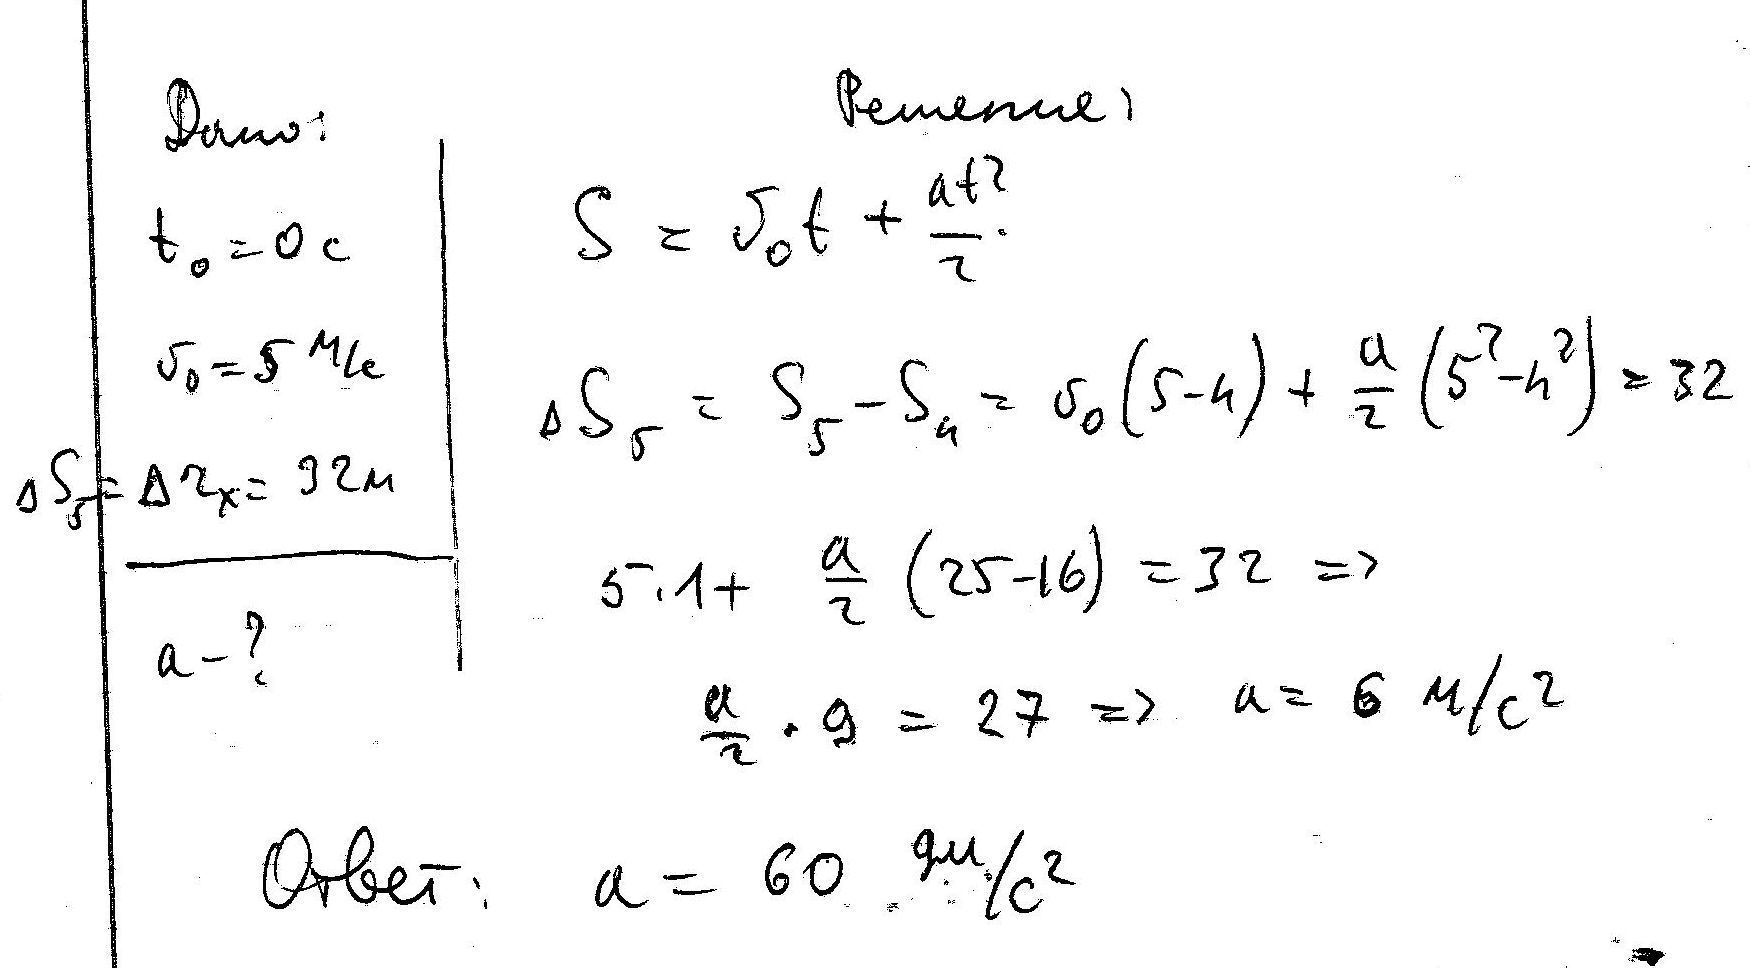 Дано:
t₀ = 0 c
υ₀ = 5 м/с
ΔS₅ = Δr_x = 32 м
a - ?
Решение:
S = υ₀t + at²/2.
ΔS₅ = S₅ - S₄ = υ₀(5-4) + a/2 (5²-4²) = 32
5·1 + a/2 (25-16) = 32 =>
a/2 · 9 = 27 => a = 6 м/с²
Ответ: a = 60 дм/с²